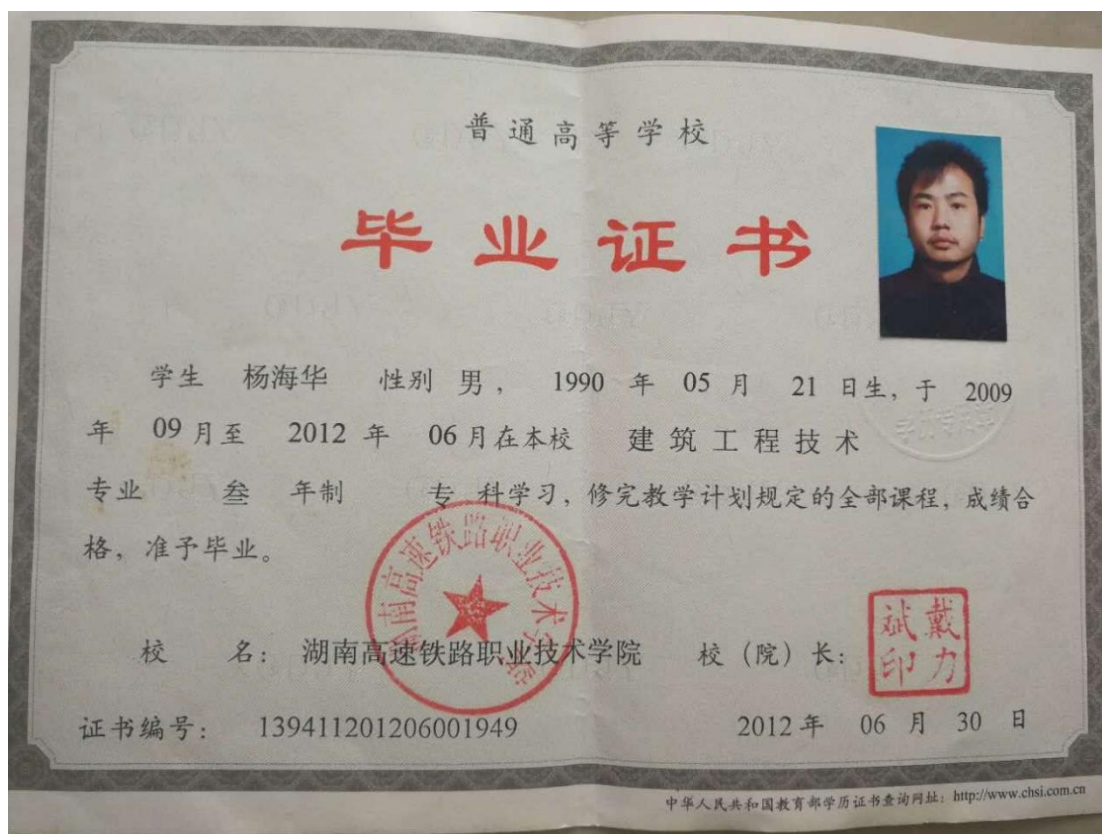 普通高等学校
毕业证书
学生 杨海华 性别 男， 1990 年 05 月 21 日生，于 2009
年 09 月至 2012 年 06 月在本校 建筑工程技术
专业 叁 年制 专 科学习，修完教学计划规定的全部课程，成绩合
格，准予毕业。
湖南高速铁路职业技术学院
校 名： 湖南高速铁路职业技术学院 校（院）长：
戴力斌印
证书编号： 139411201206001949 2012 年 06 月 30 日
中华人民共和国教育部学历证书查询网址：http://www.chsi.com.cn